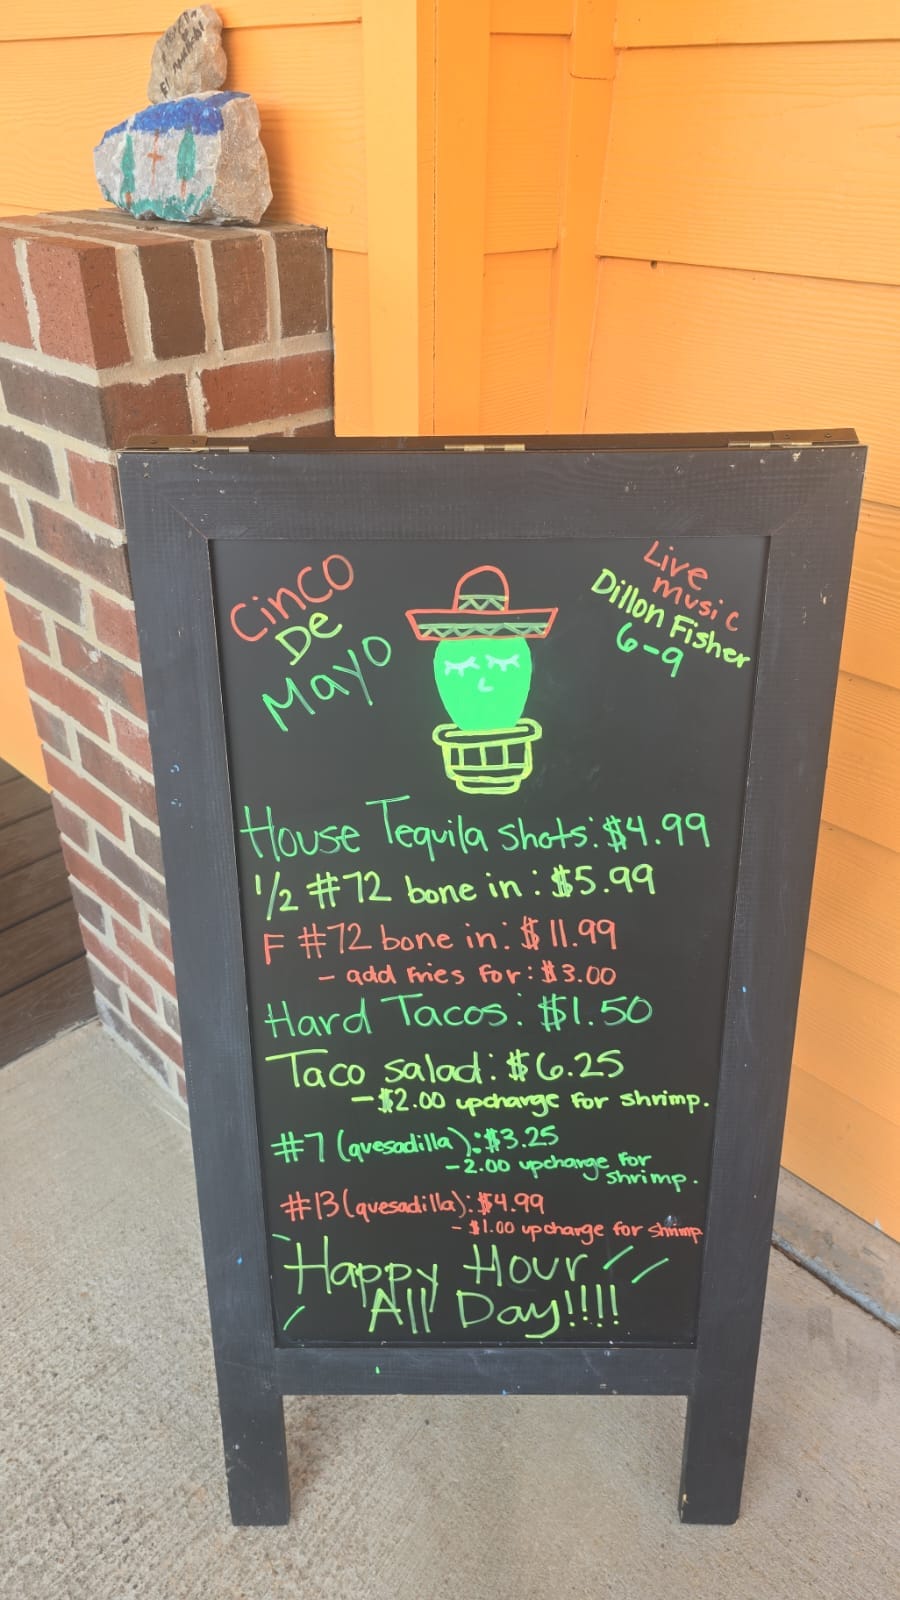 Cinco
De
Mayo
Live
music
Dillon Fisher
6-9
House Tequila shots: $4.99
1/2 #72 bone in: $5.99
F #72 bone in: $11.99
- add fries for: $3.00
Hard Tacos: $1.50
Taco salad: $6.25
- $2.00 upcharge for shrimp.
#7 (quesadilla): $3.25
- 2.00 upcharge for
shrimp.
#13 (quesadilla): $4.99
- $1.00 upcharge for shrimp
Happy Hour
All Day!!!!